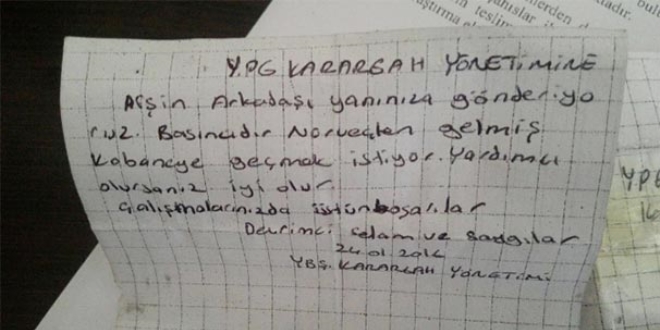 YPG KARARGAH YÖNETİMİNE
Afşin Arkadaşı yanınıza gönderiyo
ruz. Basıncıdır Norveçten gelmiş
Kobaneye geçmek istiyor. Yardımcı
olursanız iyi olur
Çalışmalarınızda üstün başarılar
Devrimci Selam ve Saygılar
YBŞ. KARARGAH YÖNETİMİ
YPG